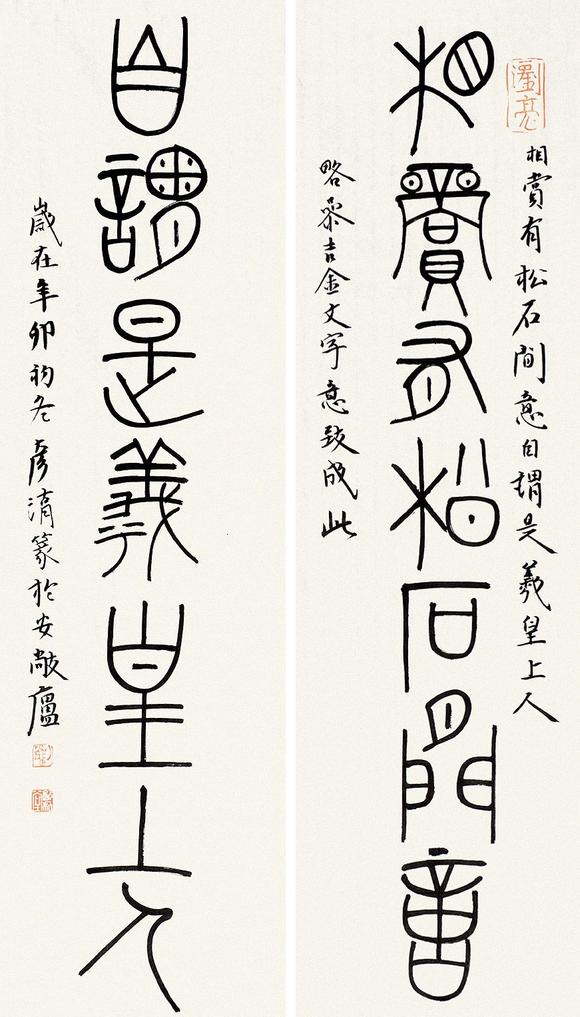 相賞有松石間意自謂是羲皇上人
相賞有松石間意
略參吉金文字意致成此
自謂是羲皇上人
歲在辛卯初冬彥湖篆於安敞廬